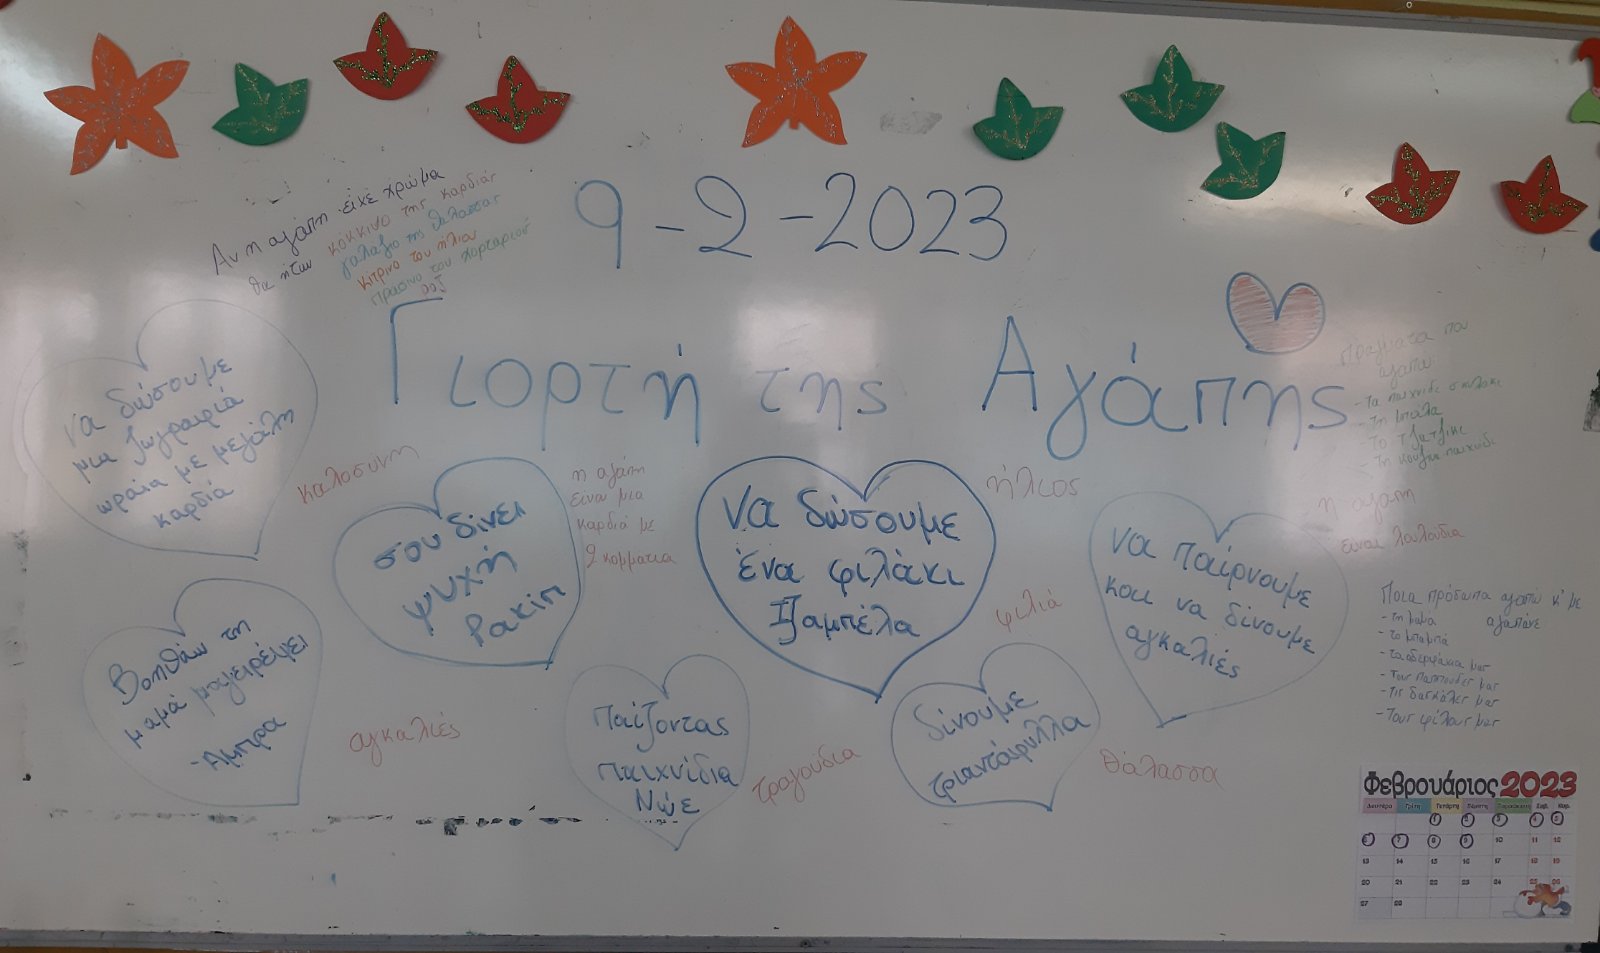 9-2-2023
Αν η αγάπη είχε χρώμα
θα ήταν κόκκινο της καρδιάς
γαλάζιο της θάλασσας
κίτρινο του ήλιου
πράσινο του χορταριού
ροζ
Γιορτή της Αγάπης
να δώσουμε
μια ζωγραφιά
ωραία με μεγάλη
καρδιά
καλοσύνη
σου δίνει
ψυχή
Ρακίπ
η αγάπη
είναι μια
καρδιά με
2 κομματια
να δώσουμε
ένα φιλάκι
Ιζαμπέλα
ήλιος
φιλιά
να παίρνουμε
και να δίνουμε
αγκαλιές
Πράγματα που
αγαπώ:
- Τα παιχνίδε σκυλάκι
- Τη μπάλα
- Το τζατζίκι
- Τη κουζίνα παιχνίδι
- η αγαπη
είναι λουλούδια
Ποια πρόσωπα αγαπώ κ' με
αγαπάνε
- τη μαμα
- το μπαμπά
- τα αδερφάκια μας
- τους παππούδες μας
- τις δασκάλες μας
- Τους φίλους μας
Βοηθάω τη
μαμά μαγειρέψει
-Αμπρα
αγκαλιές
παίζοντας
παιχνίδια
Νώε
τραγούδια
δίνουμε
τριαντάφυλλα
θάλασσα
Φεβρουάριος 2023
Δευτέρα Τρίτη Τετάρτη Πέμπτη Παρασκευή Σαβ. Κυρ.
1 2 3 4 5
6 7 8 9 10 11 12
13 14 15 16 17 18 19
20 21 22 23 24 25 26
27 28